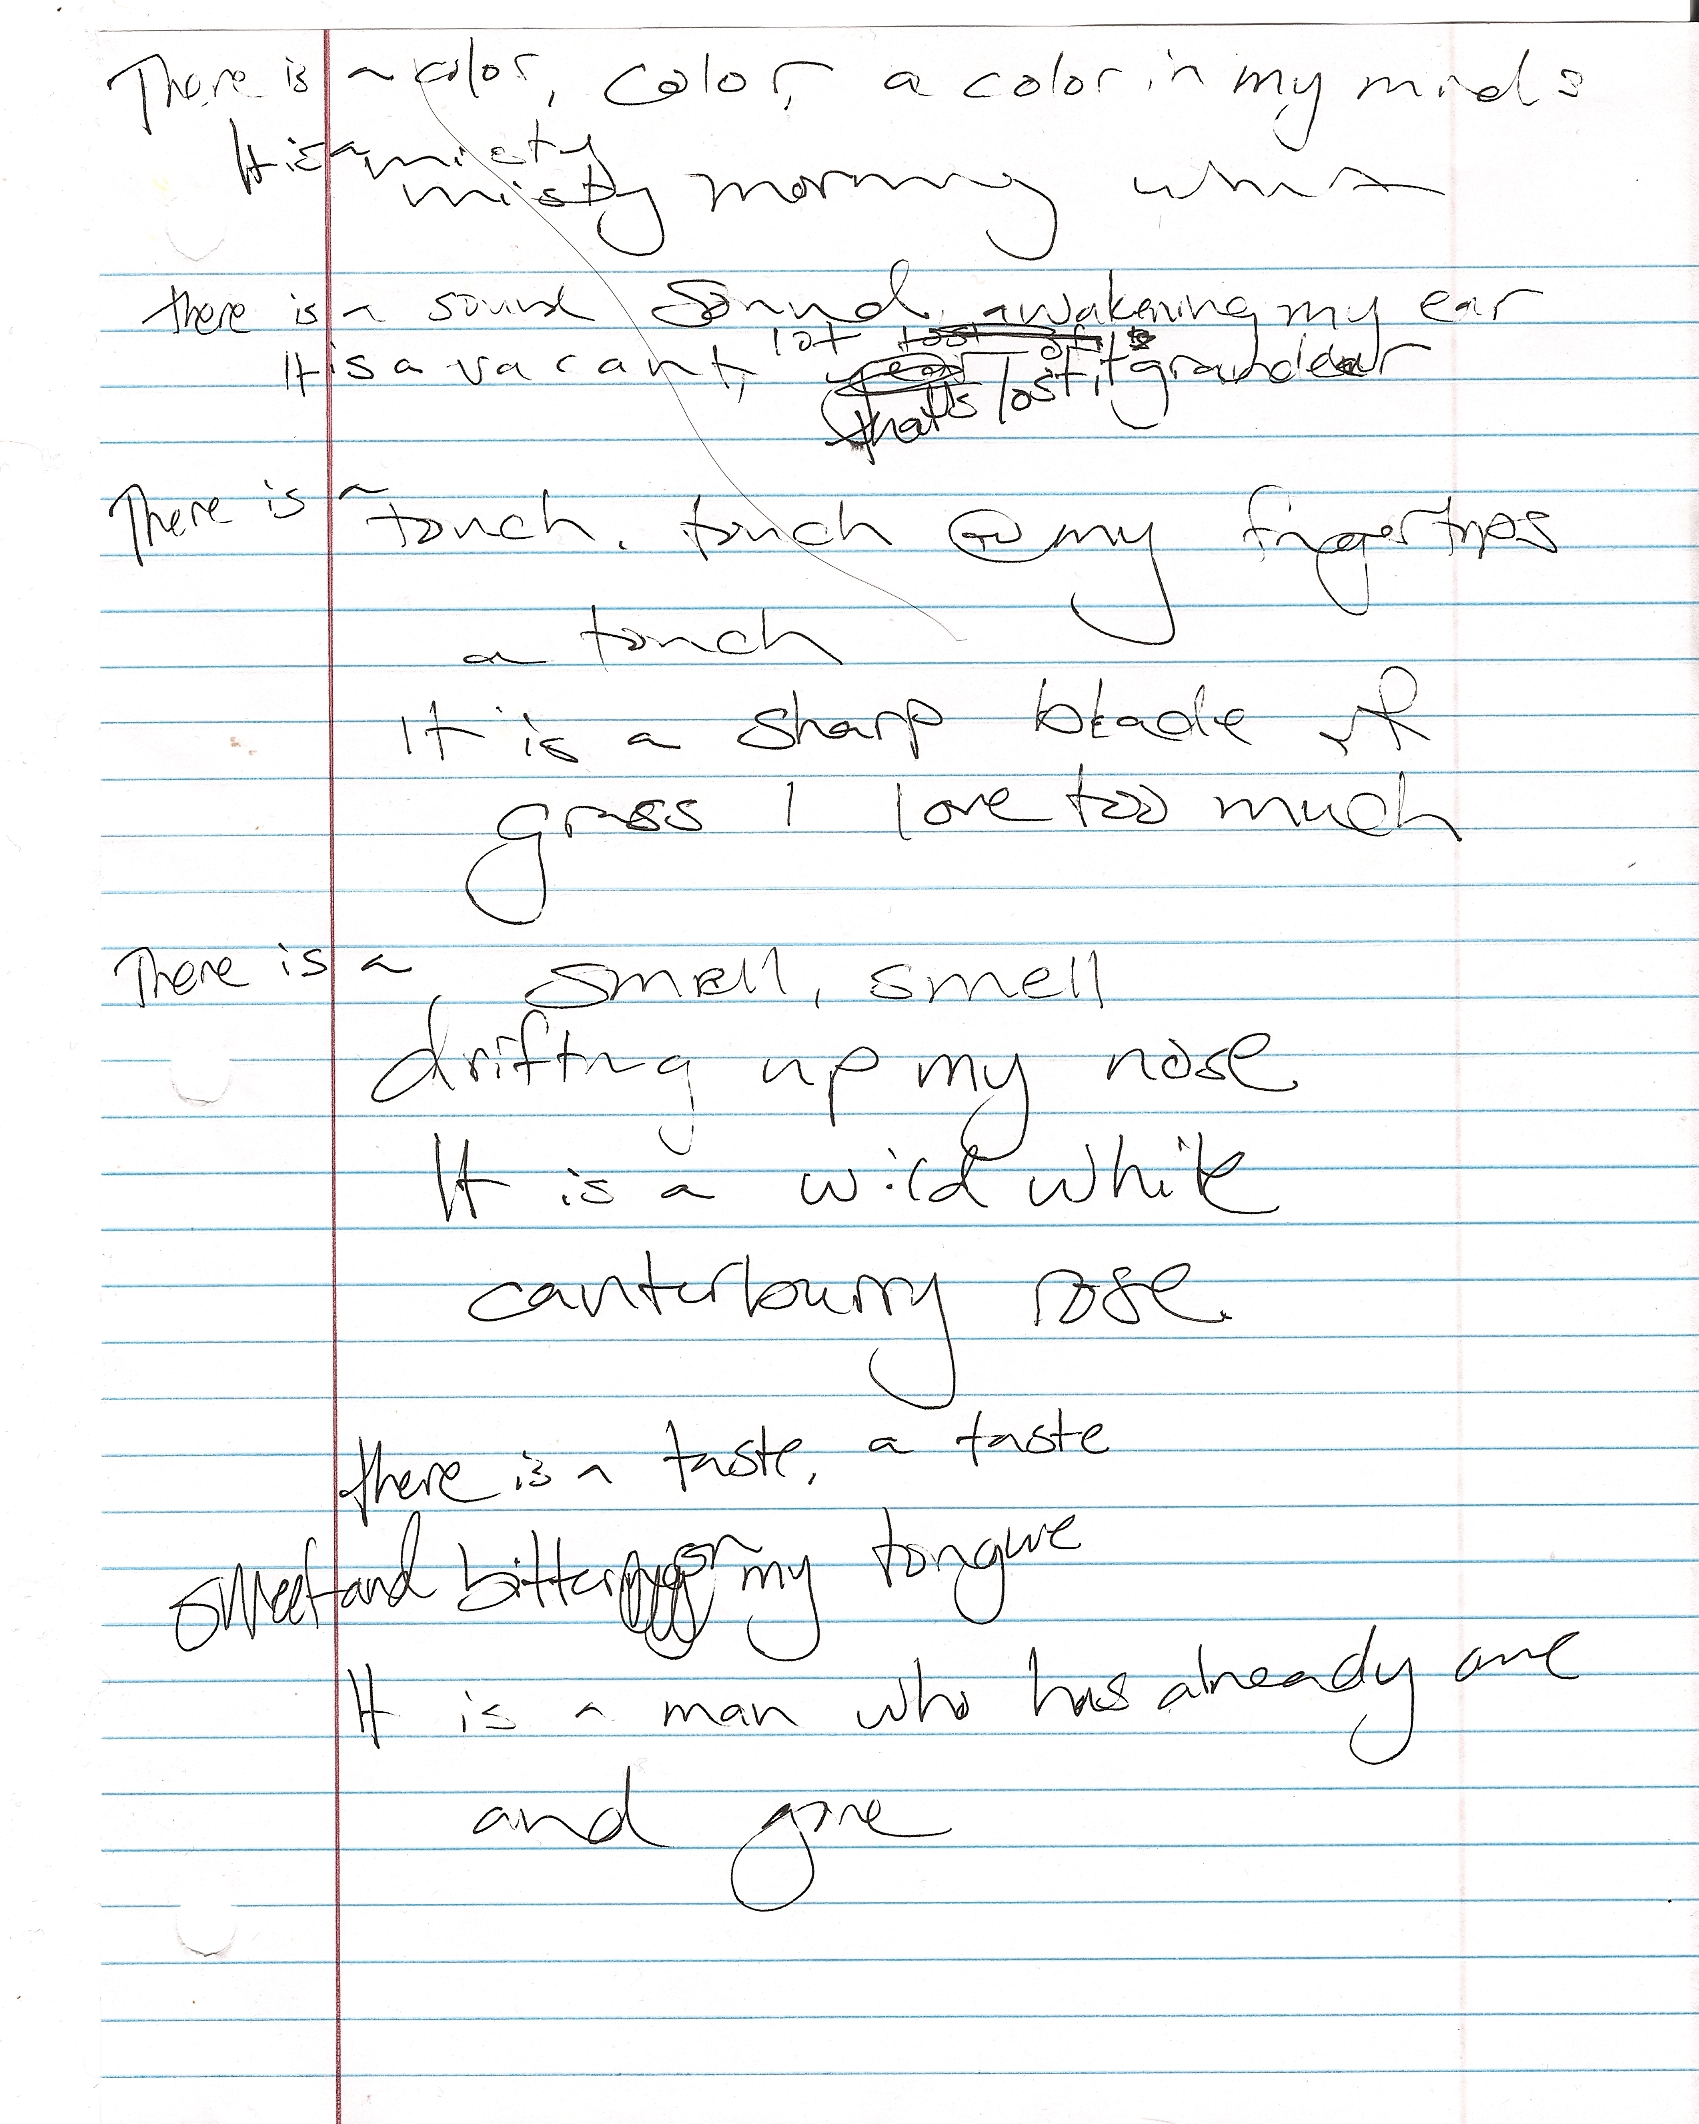 There is a color, color, a color in my minds
It is a misty
misty morning
there is a sound sound, awakening my ear
It is a vacant, lot lost of its
that's lost it grandeur
There is a touch. touch @ my fingertips
a touch
It is a sharp blade of
grass I love too much
There is a smell, smell
drifting up my nose
It is a wild white
canterburry rose.
there is a taste, a taste
sweet and bitter on my tongue
It is a man who has already
and gone